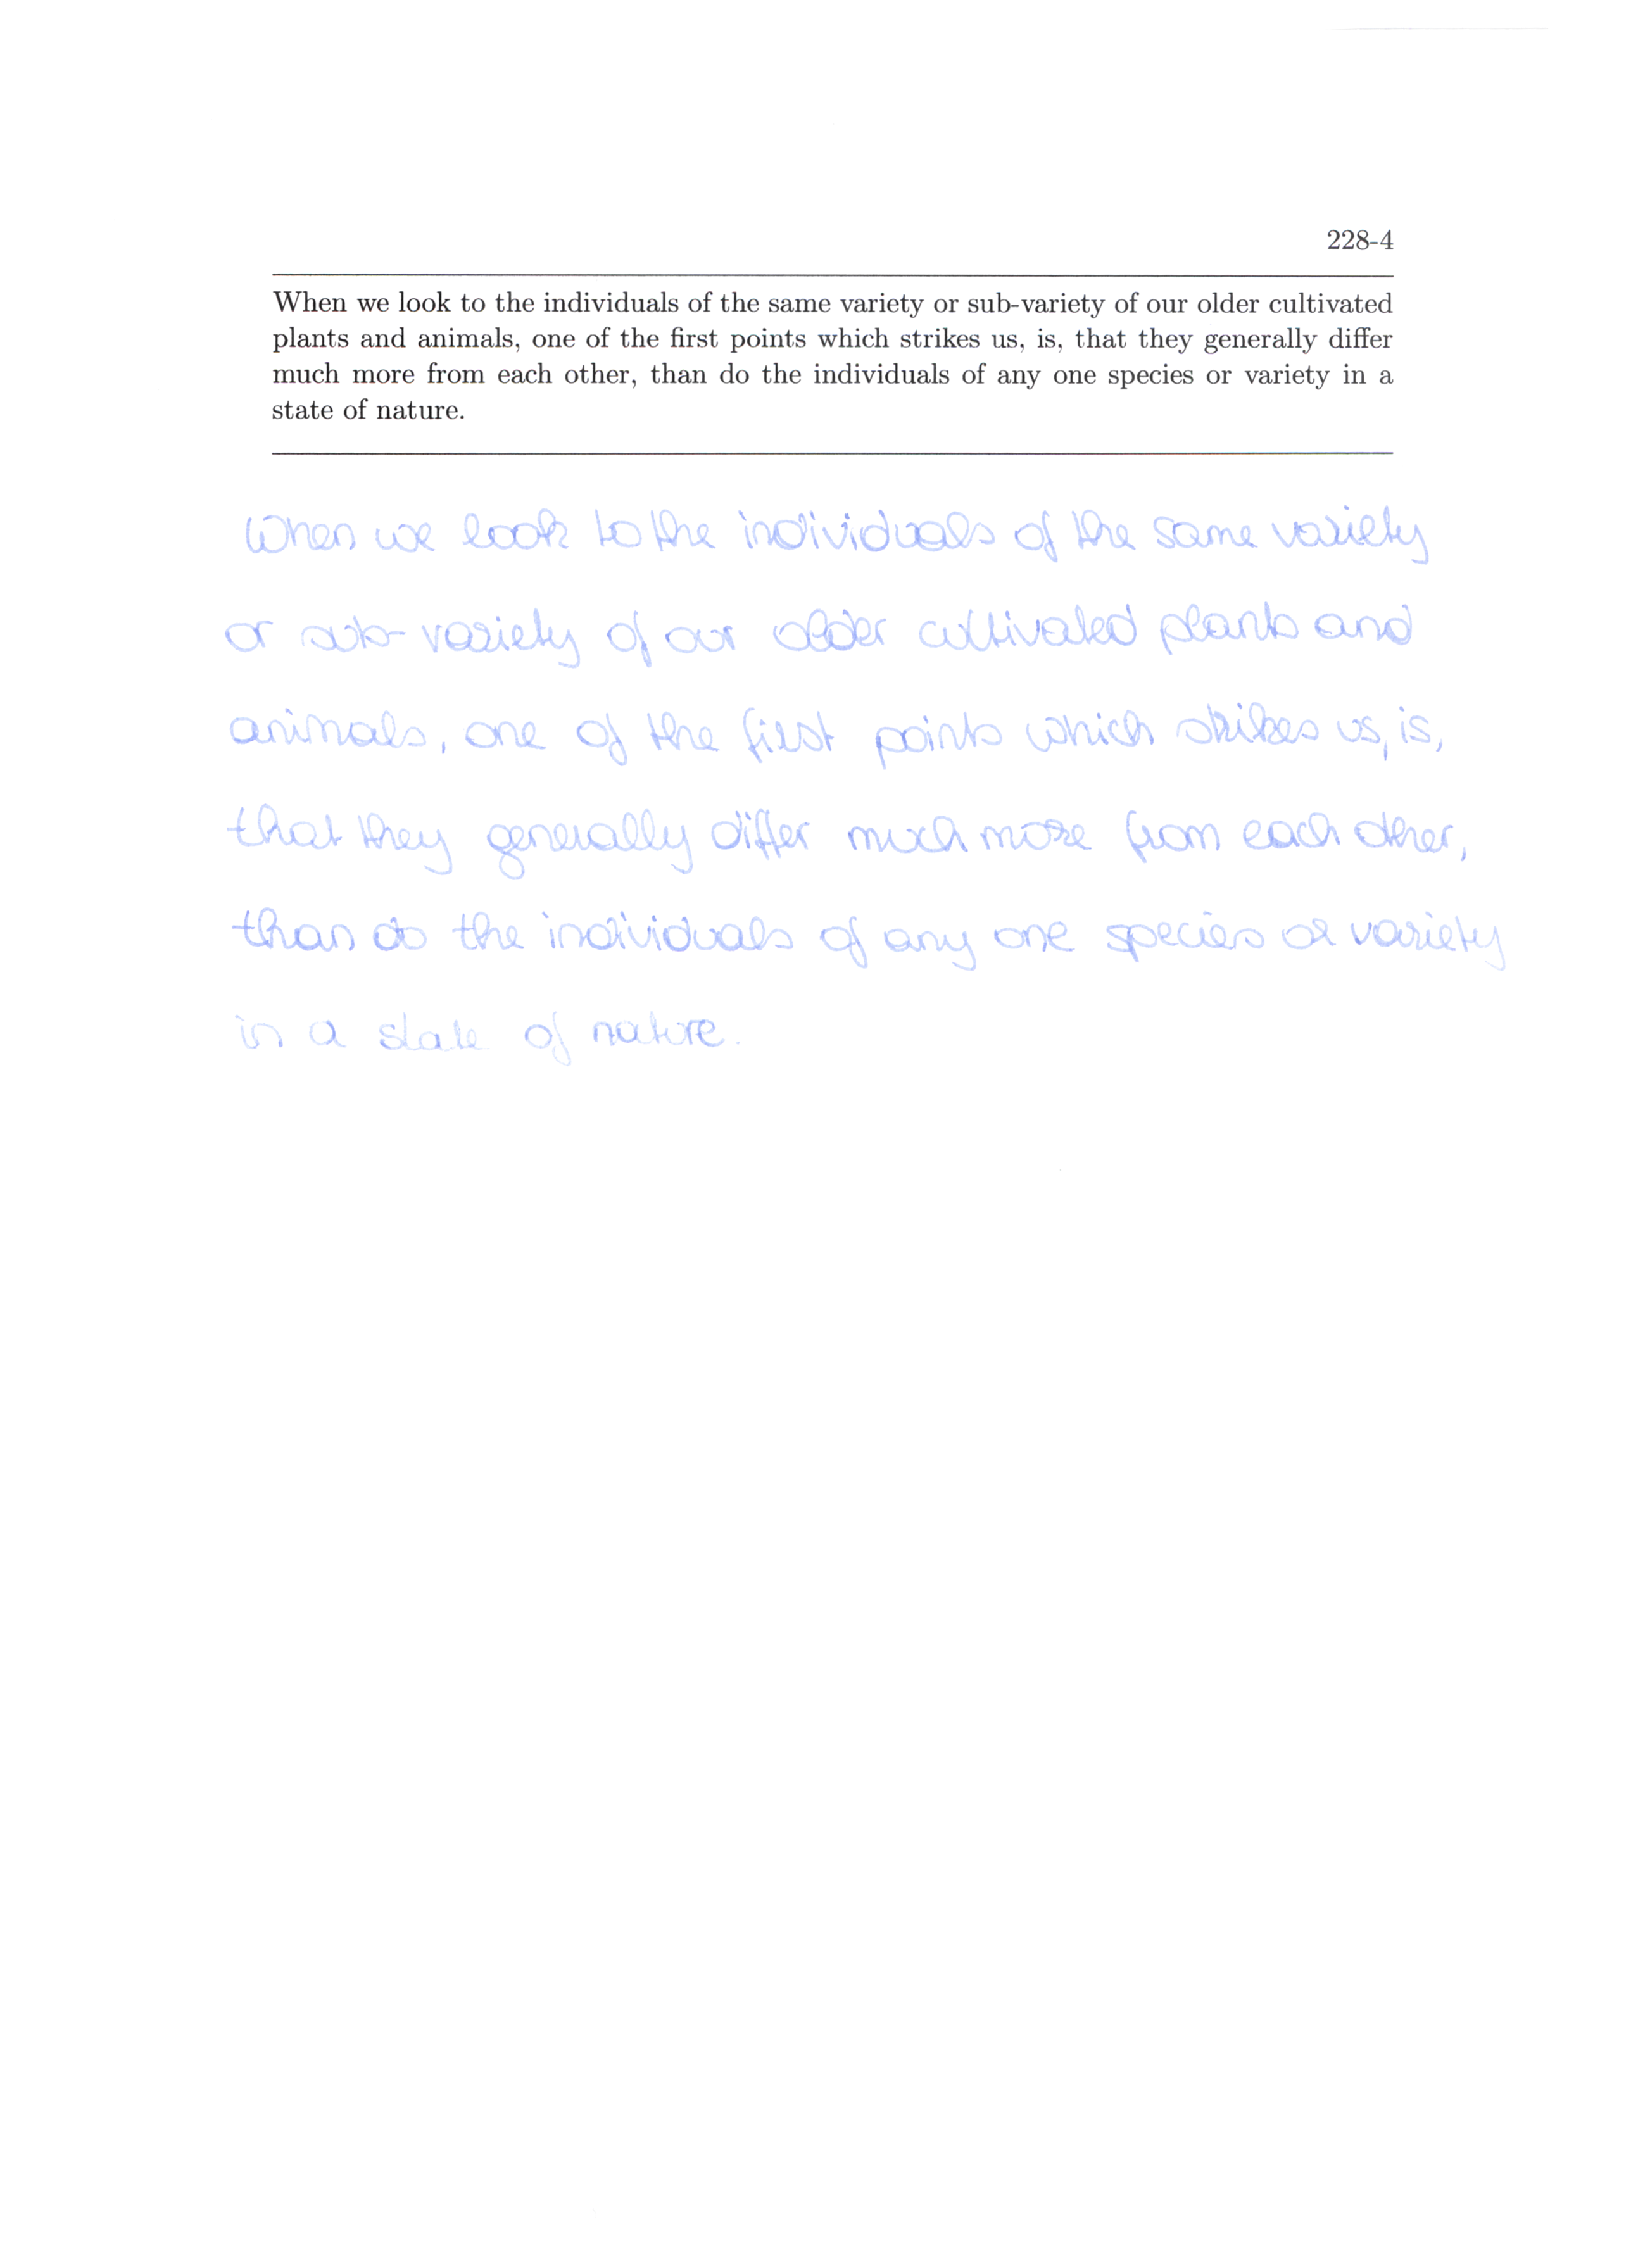 228-4
When we look to the individuals of the same variety or sub-variety of our older cultivated
plants and animals, one of the first points which strikes us, is, that they generally differ
much more from each other, than do the individuals of any one species or variety in a
state of nature.
When we look to the individuals of the same variety
or sub-variety of our older cultivated plants and
animals, one of the first points which strikes us, is,
that they generally differ much more from each other,
than do the individuals of any one species or variety
in a state of nature.